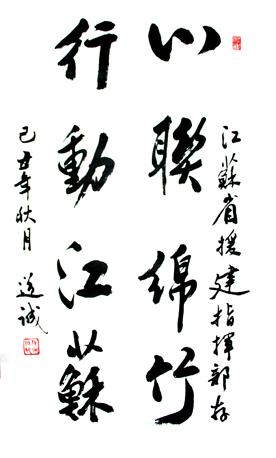 江蘇省援建指揮部存
心聯綿竹
行動江蘇
己丑年秋月
誠